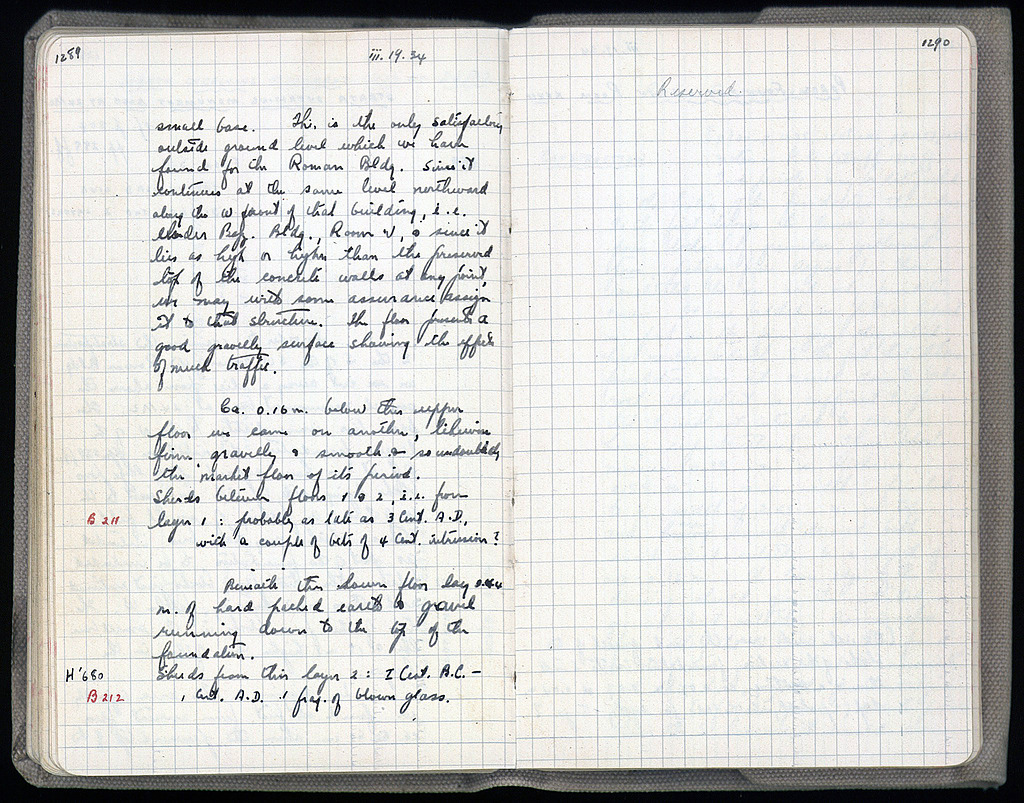 1289
iii. 19. 34
small base. This is the only satisfactory
outside ground level which we have
found for the Roman Bldg. Since it
continues at the same level northward
along the W front of that building, i.e.
under Byz. Bldg., Room V, & since it
lies as high or higher than the preserved
top of the concrete walls at any point,
we may with some assurance assign
it to that structure. The floor presents a
good gravelly surface showing the effects
of much traffic.
Ca. 0.16 m. below this upper
floor we came on another, likewise
firm gravelly & smooth & so undoubtedly
the market floor of its period.
Sherds between floors 1 & 2, i.e. from
B 211 layer 1 : probably as late as 3 Cent. A.D.,
with a couple of bits of 4 Cent. intrusion?
Beneath this lower floor lay
m. of hard packed earth & gravel
running down to the top of the
foundation.
H'680 Sherds from this layer 2 : I Cent. B.C. –
B 212 1 Cent. A.D. 1 frag. of blown glass.
1290
Reserved.